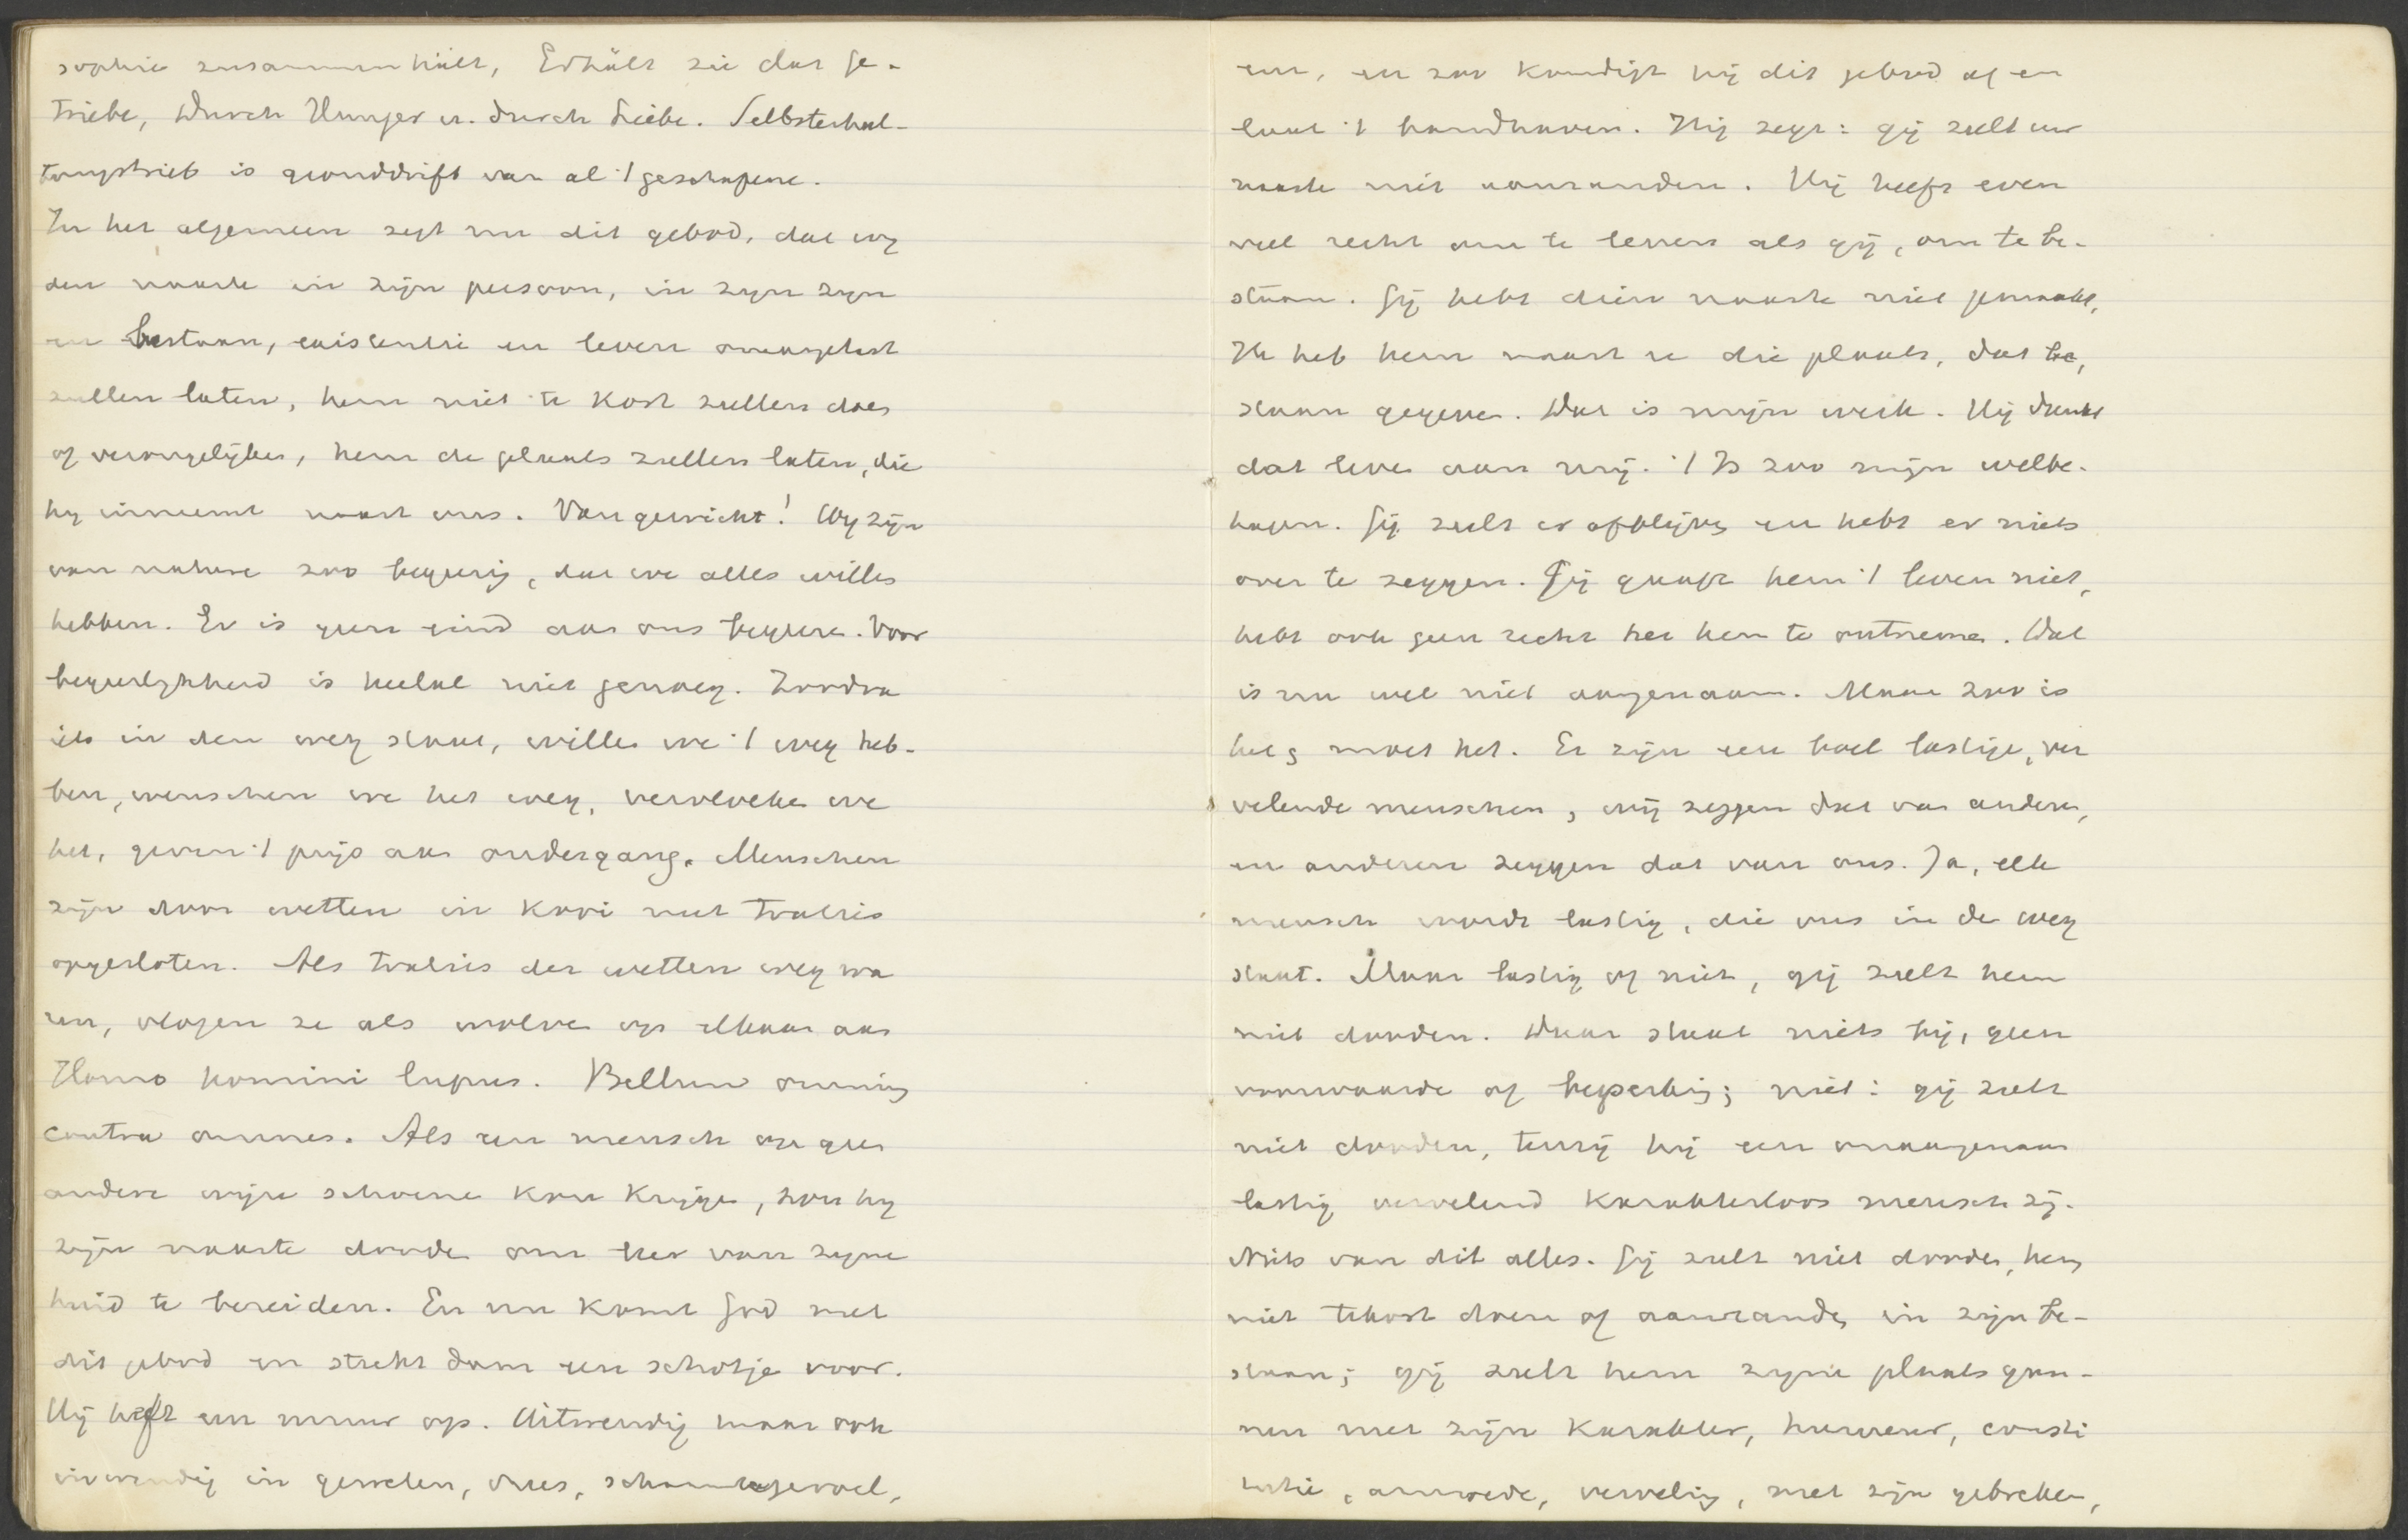 sophie zusammenhält, Erhält sie das Ge-
triebe, Durch Hunger u. durch Liebe. Selbsterhal-
tungstrieb is gronddrift van al 't geschapene.
In het algemeen zegt nu dit gebod, dat wy
den naaste in zijn persoon, in zyn zyn
en bestaan, existentie en leven onaangetast
zullen laten, hem niet te kort zullen doen
of verongelyken, hem de plaats zullen laten, die
hy inneemt naast ons. Van gewicht! Wy zijn
van nature zoo begeerig, dat we alles willen
hebben. Er is geen eind aan ons begeeren. Voor
begeerlykheid is heelal niet genoeg. Zoodra
iets in den weg staat, willen we 't weg heb-
ben, wenschen we het weg, vervloeken we
het, geven 't prijs aan ondergang. Menschen
zijn door wetten in kooi met tralies
opgesloten. Als tralies der wetten weg wa
ren, vlogen ze als wolven op elkaar aan
Homo homini lupus. Bellum omnium
contra omnes. Als een mensch op geen
andere wijze schoenen kon krijgen, zou hy
zijn naaste dooden om ze van zyne
huid te bereiden. En nu komt God met
dit gebod en steekt daar een schotje voor.
Hij heft een muur op. Uitwendig maar ook
inwendig in geweten, vrees, schaamtegevoel,
eer, en zoo kondigt hij dit gebod af en
laat 't handhaven. Hij zegt: gij zult uw
naaste niet aanranden. Hij heeft even
veel recht om te leven als gij, om te be-
staan. Gij hebt dien naaste niet gemaakt,
Ik heb hem naast u die plaats, dat be,
staan gegeven. Dat is mijn werk. Hij dankt
dat leven aan mij. 't Is zoo mijn welbe-
hagen. Gij zult er afblijven en hebt er niets
over te zeggen. Gij gaaft hem 't leven niet,
hebt ook geen recht het hem te ontnemen. Dat
is nu wel niet aangenaam. Maar zoo is
het en moet het. Er zijn een boel lastige, ver
velende menschen, wij zeggen dat van anderen,
en anderen zeggen dat van ons. Ja, elk
mensch wordt lastig, die ons in de weg
staat. Maar lastig of niet, gij zult hem
niet dooden. Daar staat niets bij, geen
voorwaarde of beperking; niet: gij zult
niet dooden, tenzij hij een onaangenaam
lastig vervelend karakterloos mensch zij.
Niets van dit alles. Gij zult niet dooden, hem
niet tekort doen of aanranden in zijn be-
staan; gij zult hem zyne plaats gun-
nen met zijn karakter, humeur, consti
tutie, armoede, verveling, met zijn gebreken,